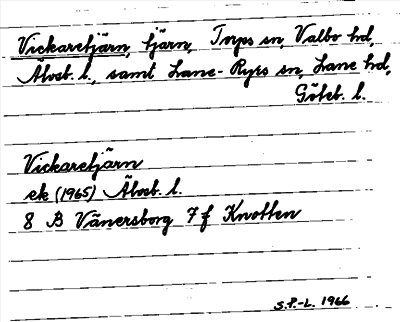 Vickaretjärn, tjärn, Torps sn, Valbo hd,
Älvsb. l., samt Lane-Ryrs sn, Lane hd,
Göteb. l.
Vickaretjärn
ek (1965) Älvsb. l.
8 B Vänersborg 7 f Knotten
S.P.-L. 1966